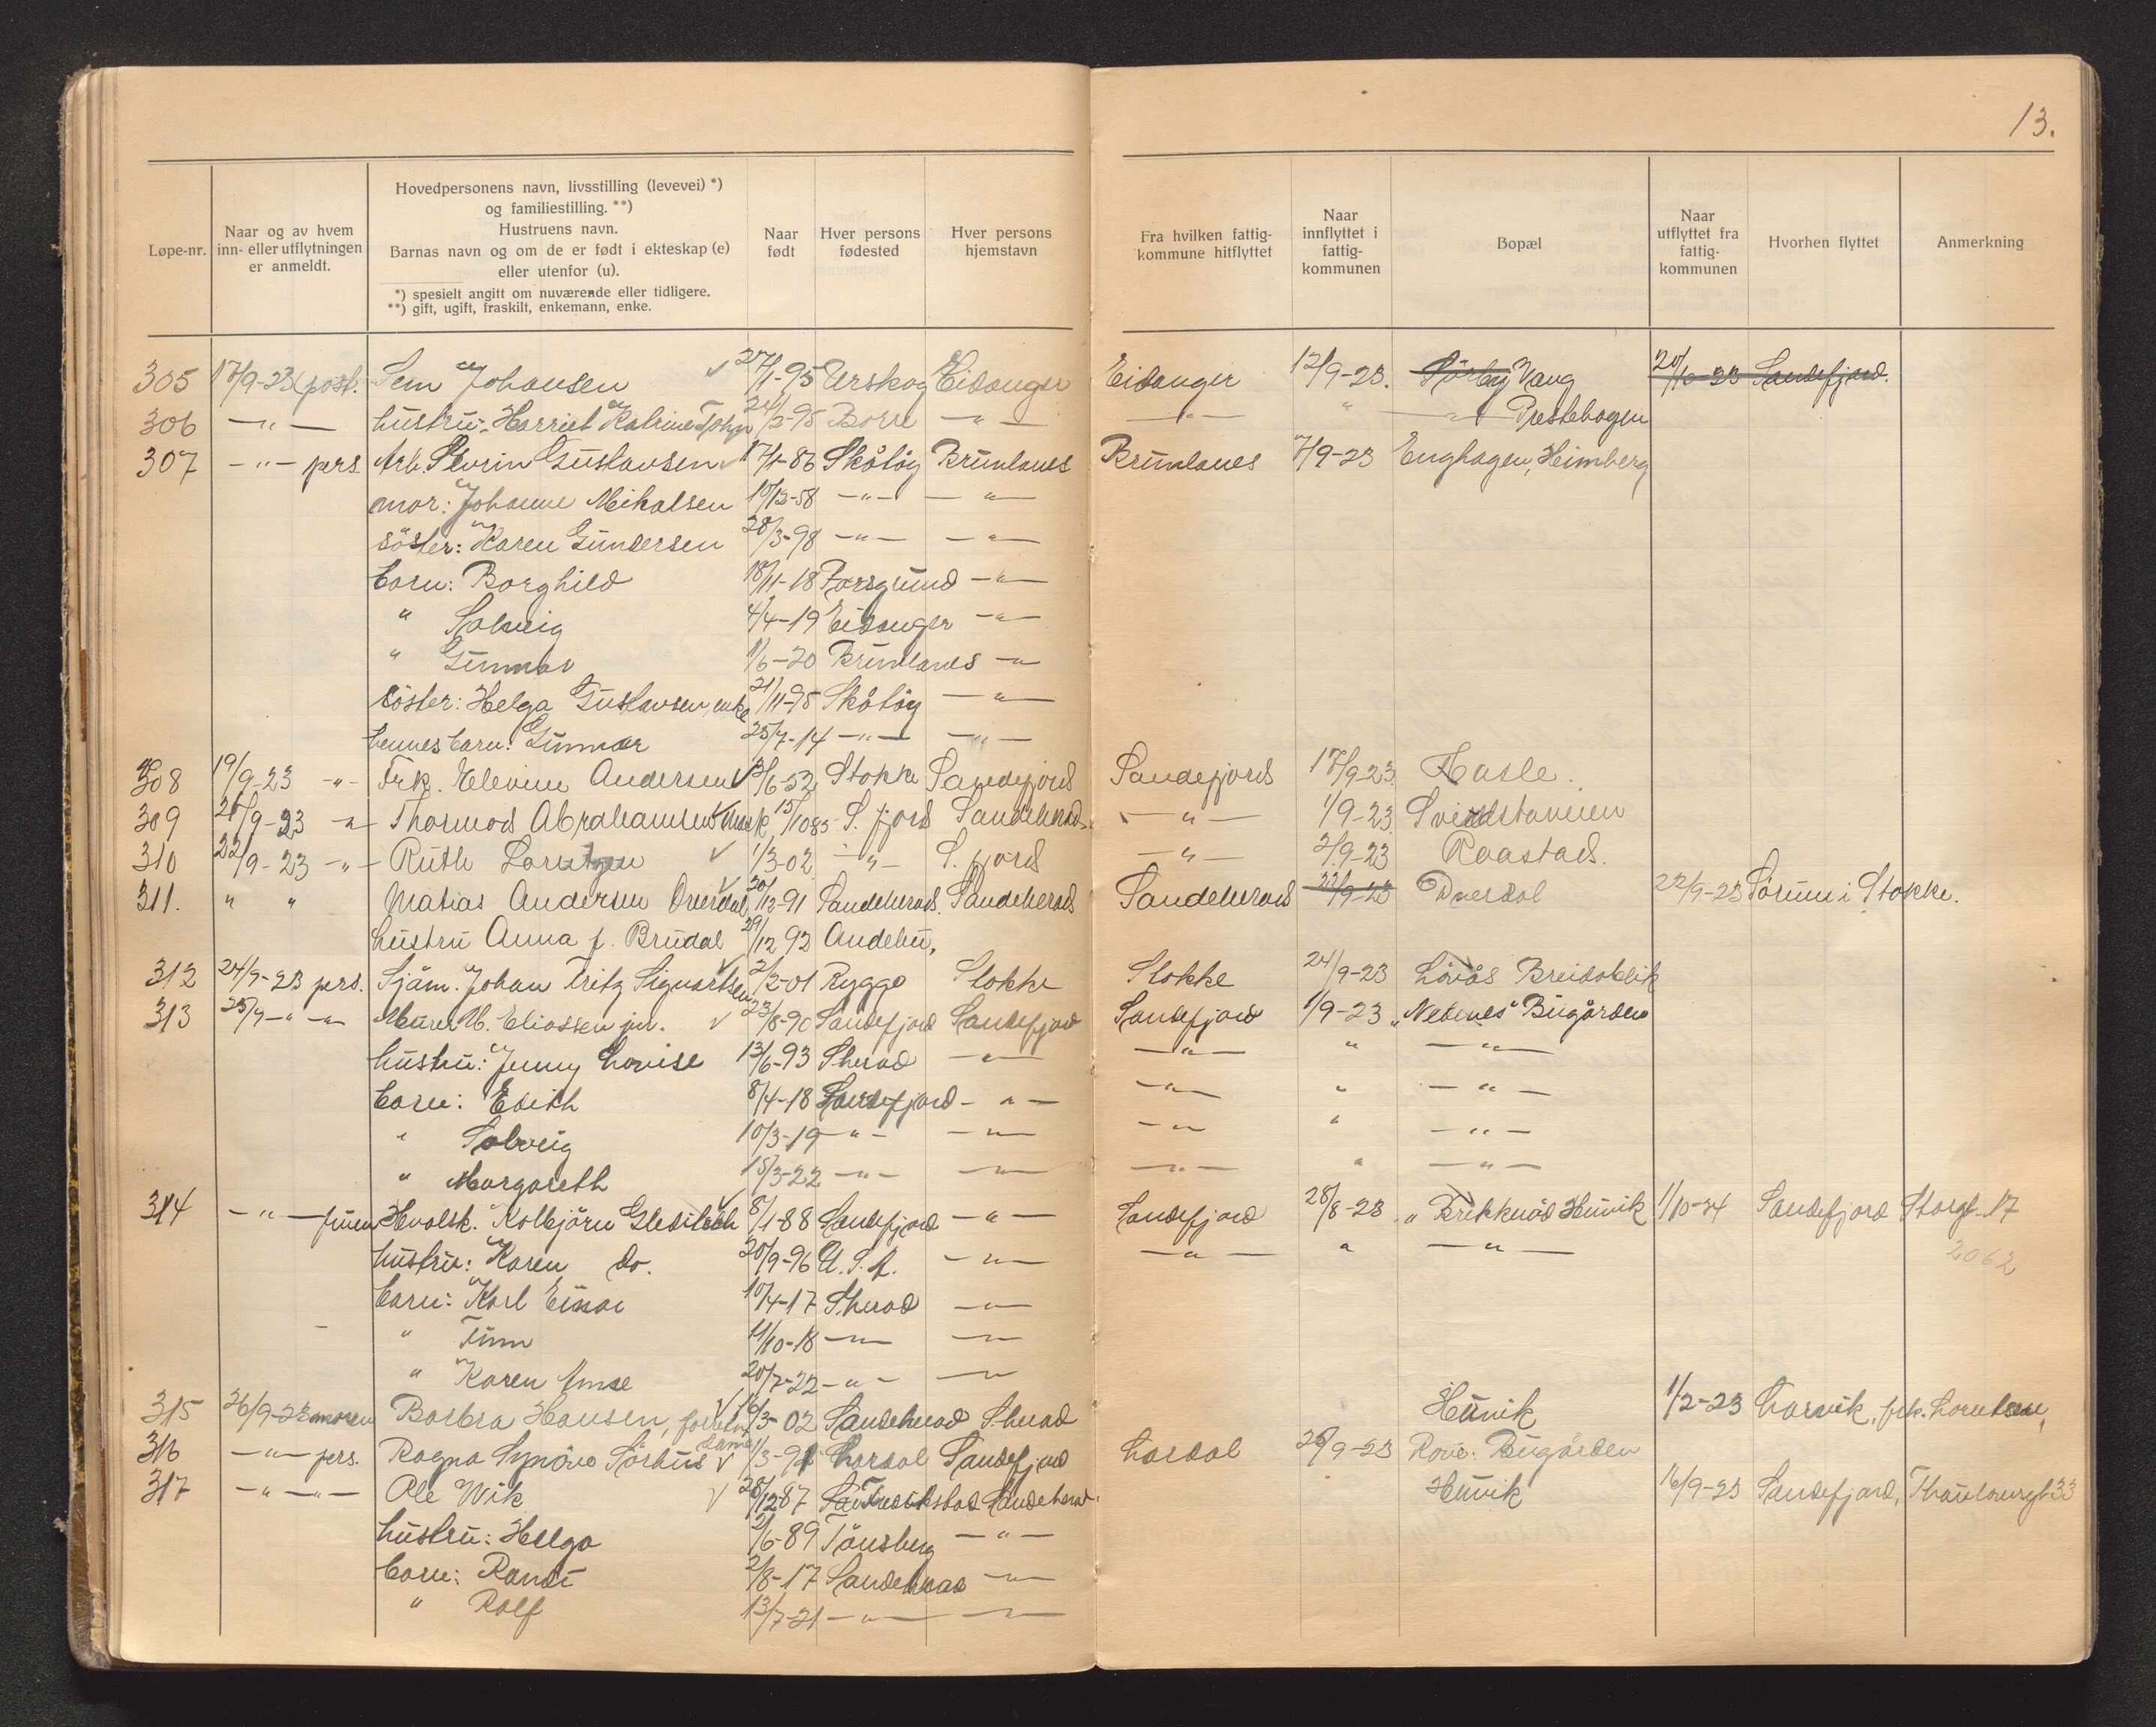 13.
Løpe-nr. | Naar og av hvem inn- eller utflytningen er anmeldt. | Hovedpersonens navn, livsstilling (levevei) *) og familiestilling. **) Hustruens navn. Barnas navn og om de er født i ekteskap (e) eller utenfor (u). *) spesielt angitt om nuværende eller tidligere. **) gift, ugift, fraskilt, enkemann, enke. | Naar født | Hver persons fødested | Hver persons hjemstavn | Fra hvilken fattigkommune hitflyttet | Naar innflyttet i fattigkommunen | Bopæl | Naar utflyttet fra fattigkommunen | Hvorhen flyttet | Anmerkning
305 17/9-23 (post. Sem Johansen 27/1-95 Urskog Eidanger Eidanger 12/9-23. Sörby Vang 20/10-23 Sandefjord.
306 -"- hustru: Harriet Katrine Johs. 24/2-95 Borre -"- -"- " -"- Prestehagen
307 -"- pers. Arb. Sevrin Gustavsen 17/1-86 Skåtöy Brunlanes Brunlanes 7/9-23 Enghagen, Heimberg
mor: Johanne Mikalsen 10/12-58 -"- -"-
söster: Karen Gundersen 28/3-98 -"- -"-
barn: Borghild 18/11-18 Porsgrund -"-
" Solveig 4/4-19 Eidanger -"-
" Gunnar 1/6-20 Brunlanes -"-
söster: Helga Gustavsen, enke 21/11-95 Skåtöy -"-
hennes barn: Gunnar 25/7-14 -"- -"-
308 19/9-23 -"- Frk. Elevine Andersen 3/6-52 Stokke Sandefjord Sandefjord 17/9-23 Hasle.
309 21/9-23 -"- Thormod Abrahamsen 15/10 85 S. fjord Sandeherad. -"- 1/9-23 Svindstavneien
310 22/9-23 -"- Ruth Lorentzen 1/3-02 -"- S. fjord -"- 2/9-23 Raastad.
311. " " Matias Andersen Överdal 20/12-91 Sandeherad. Sandeherad Sandeherad 22/9-23 Överdal 22/9-23 Sörum i Stokke.
hustru Anna f. Brudal 29/12 92 Andebu.
312 24/9-23 pers. Sjöm. Johan Fritz Sigvartsen 2/2-01 Rygge Stokke Stokke 24/9-23 Lövås Breidablik
313 25/9 -"- -"- Murer M. Eliassen jnr. 23/8-90 Sandefjord Sandefjord Sandefjord 1/9-23 "Nebenes" Bugården
hustru: Jenny Lovise 13/6-93 Sherad -"- -"- " -"-
barn: Edith 8/4-18 Sandefjord -"- -"- " -"-
" Solveig 10/3-19 -"- -"- -"- " -"-
" Margareth 15/3-22 -"- -"- -"- " -"-
314 -"- fruen Hvalsk. Kolbjörn Gleditsch 8/1-88 Sandefjord -"- Sandefjord 28/8-23 "Brekkeröd Hunvik 1/10-34 Sandefjord Storgt. 17
hustru: Karen do. 20/9-96 U.S.A. -"- -"- " -"- 2062
barn: Karl Einar 10/4-17 Sherad -"-
" Finn 11/10-18 -"- -"-
" Karen Anne 20/7-22 -"- -"-
315 26/9-23 moren Borbra Hansen, 16/3-02 Sandeherad Sherad Hunvik 1/2-23 Larvik, frk. Lorentzen,
316 -"- pers. Ragna Synöve Sörhus 1/3-91 Lardal Sandefjord Lardal 26/9-23 Rove: Bugården
317 -"- -"- Ole Wik 28/12 87 Fredrikstad Sandeherad. Hunvik 16/9-23 Sandefjord, Thaulowsgt 33
hustru: Helga 2/6-89 Tönsberg -"-
barn: Randi 2/8-17 Sandeherad -"-
" Rolf 13/7-21 -"- -"-